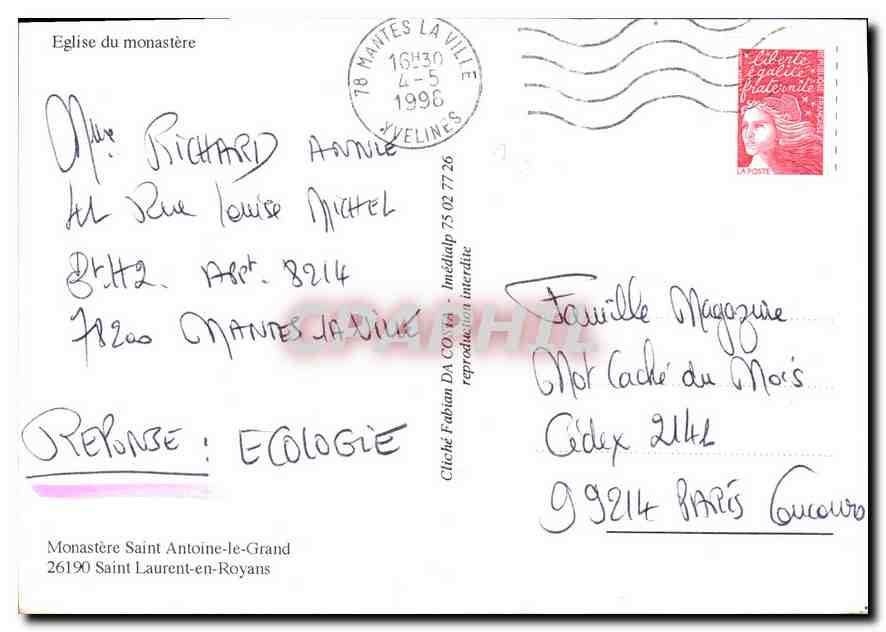 Eglise du monastère
78 MANTES LA VILLE
16H30
4-5
1998
YVELINES
liberté
égalité
fraternité
REPUBLIQUE FRANÇAISE
LA POSTE
Mme RICHARD ANNIE
41 Rue Louise MICHEL
Bt H2. APPt. 8214
78200 MANTES LA VILLE
REPONSE : ECOLOGIE
Monastère Saint Antoine-le-Grand
26190 Saint Laurent-en-Royans
Cliché Fabian DA COSTA - Imédialp 75 02 77 26
reproduction interdite
CPAPHIL
Famille Magazine
Mot Caché du Mois
Cédex 2141
99214 PARIS Concours